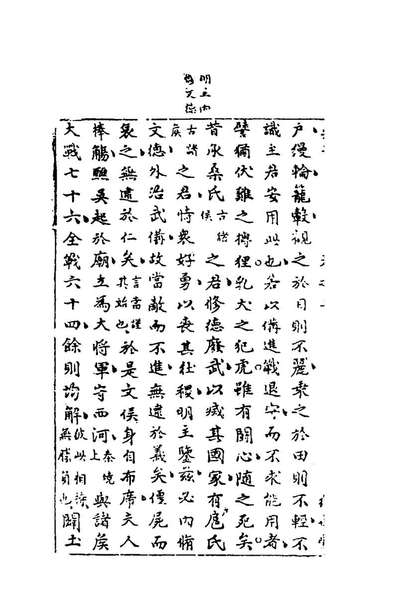 明主内
脩文德
户縵輪籠轂視之於目則不麗乗之於田則不輕不
識主君安用此也若以備進戰退守而不求能用者
譬猶伏雞之搏狸乳犬之犯虎雖有鬬心隨之死矣
昔承桑氏古諸侯之君修德廢武以㓕其國家有扈氏
古諸侯之君恃衆好勇以喪其社稷明主鑒兹必内脩
文德外治武備故當敵而不進無逮於義矣僵屍而
哀之無逮於仁矣言當謹扵始也於是文侯身自布席夫人
捧觴醮吳起於廟立為大將軍守西河秦境上與諸矦
大戰七十六全戰六十四餘則均解彼此相諒無勝負也闢土